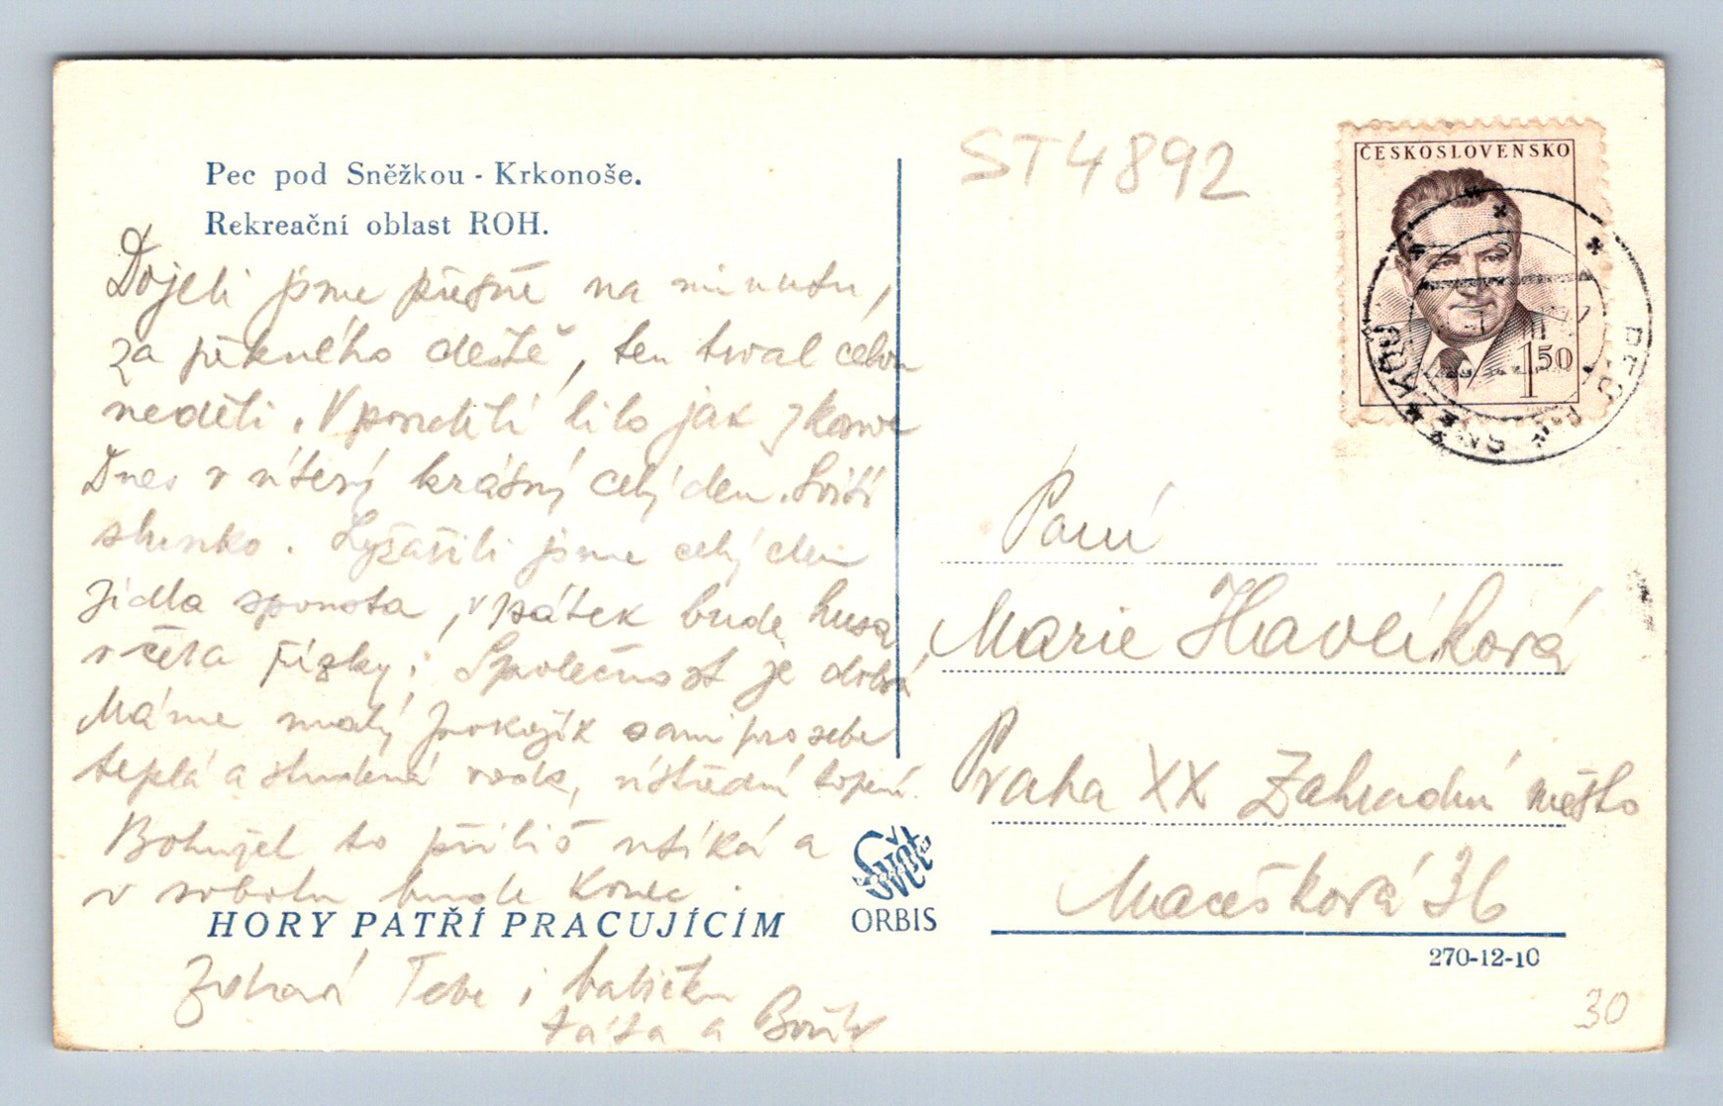 Pec pod Sněžkou - Krkonoše.
Rekreační oblast ROH.
Dojeli jsme přesně na minutu,
za pěkného deště, ten trval celou
neděli. V pondělí lilo jak z konve
Dnes v úterý krásný celý den. Svítí
slunko. Lyžařili jsme celý den
Jídla spousta, v pátek bude husa,
včera řízky. Společnost je dobrá
Máme malý pokojík sami pro sebe
teplá a studená voda, ústřední topení.
Bohužel to příliš utíká a
v sobotu bude konec.
HORY PATŘÍ PRACUJÍCÍM
Zdraví Tebe i babičku
táta a
Svět
ORBIS
ST4892
ČESKOSLOVENSKO
1.50
Paní
Marie Havlíková
Praha XX Zahradní město
Macešková 36
270-12-10
30